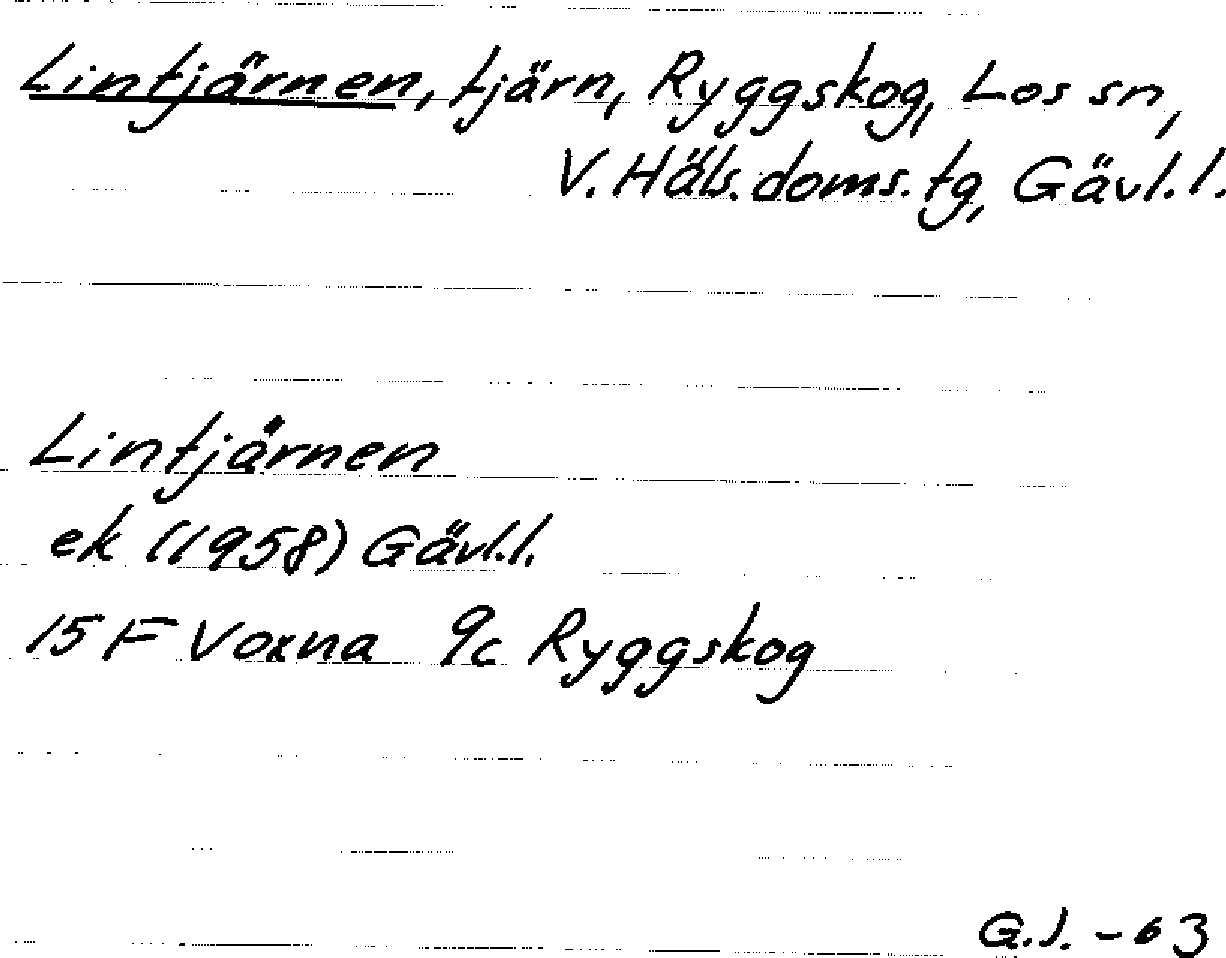 Lintjärnen, tjärn, Ryggskog, Los sn,
V. Häls. doms. tg, Gävl. l.
Lintjärnen
ek (1958) Gävl. l.
15 F Voxna 9c Ryggskog
G.J. - 63